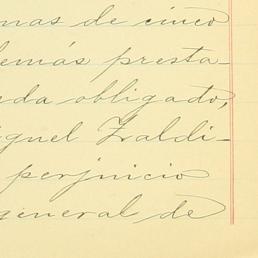 nas de cinco
demás presta-
da obligado,
iguel Zaldi-
perjuicio
general de